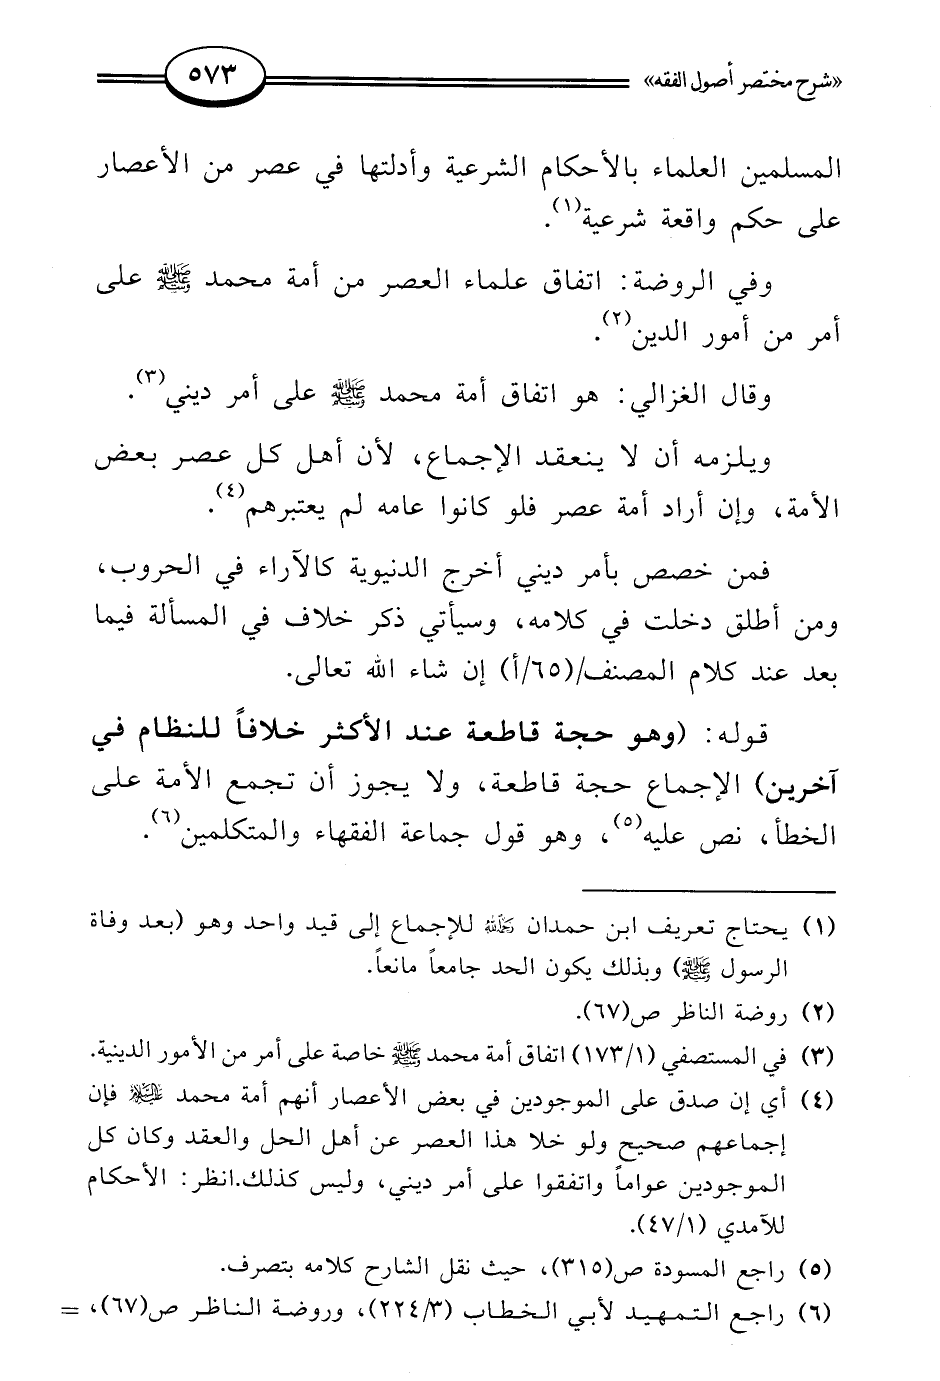 «شرح مختصر أصول الفقه» ٥٧٣
المسلمين العلماء بالأحكام الشرعية وأدلتها في عصر من الأعصار
على حكم واقعة شرعية(١).
وفي الروضة: اتفاق علماء العصر من أمة محمد ﷺ على
أمر من أمور الدين(٢).
وقال الغزالي: هو اتفاق أمة محمد ﷺ على أمر ديني(٣).
ويلزمه أن لا ينعقد الإجماع، لأن أهل كل عصر بعض
الأمة، وإن أراد أمة عصر فلو كانوا عامه لم يعتبرهم(٤).
فمن خصص بأمر ديني أخرج الدنيوية كالآراء في الحروب،
ومن أطلق دخلت في كلامه، وسيأتي ذكر خلاف في المسألة فيما
بعد عند كلام المصنف/(٦٥/أ) إن شاء الله تعالى.
قوله: (وهو حجة قاطعة عند الأكثر خلافاً للنظام في
آخرين) الإجماع حجة قاطعة، ولا يجوز أن تجمع الأمة على
الخطأ، نص عليه(٥)، وهو قول جماعة الفقهاء والمتكلمين(٦).
(١) يحتاج تعريف ابن حمدان رحمه الله للإجماع إلى قيد واحد وهو (بعد وفاة
الرسول ﷺ) وبذلك يكون الحد جامعاً مانعاً.
(٢) روضة الناظر ص(٦٧).
(٣) في المستصفي (١/١٧٣) اتفاق أمة محمد ﷺ خاصة على أمر من الأمور الدينية.
(٤) أي إن صدق على الموجودين في بعض الأعصار أنهم أمة محمد عليه السلام فإن
إجماعهم صحيح ولو خلا هذا العصر عن أهل الحل والعقد وكان كل
الموجودين عواماً واتفقوا على أمر ديني، وليس كذلك.انظر: الأحكام
للآمدي (١/٤٧).
(٥) راجع المسودة ص(٣١٥)، حيث نقل الشارح كلامه بتصرف.
(٦) راجع التمهيد لأبي الخطاب (٣/٢٢٤)، وروضة الناظر ص(٦٧)، =